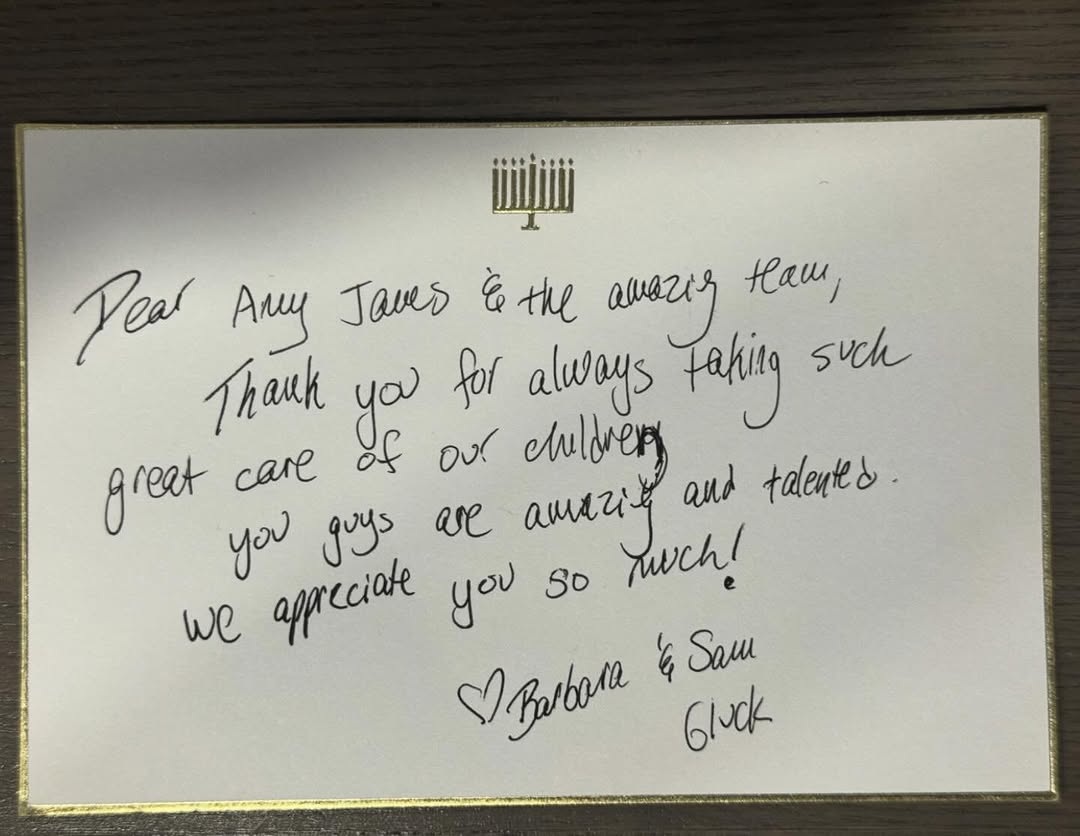 Dear Amy James & the amazig team,
Thank you for always taking such
great care of our children
you guys are amazig and talented.
we appreciate you so much!
♡ Barbara & Sam
Gluck